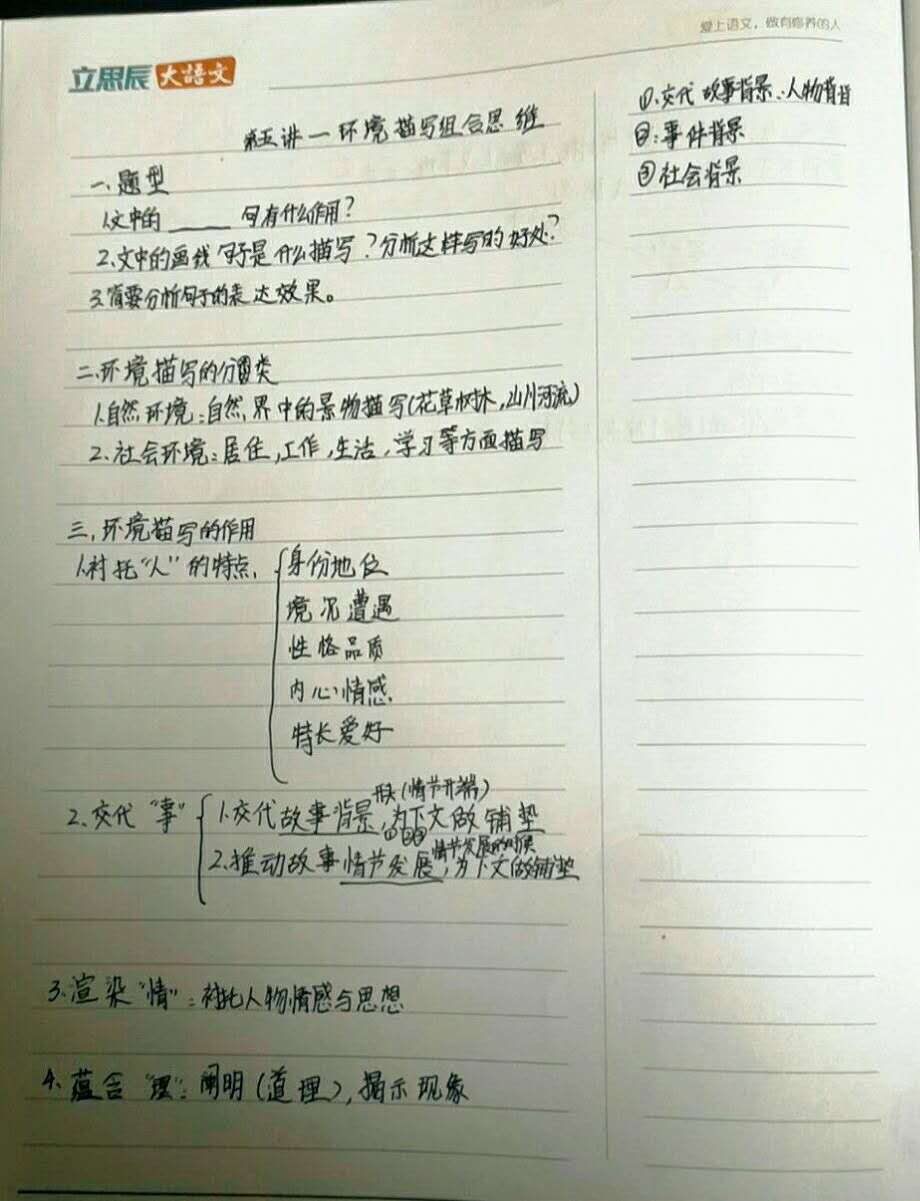 爱上语文，做有修养的人
立思辰大語文
第五讲一环境描写组合思维
一、题型
1.文中的____句有什么作用？
2.文中的画线句子是什么描写？分析这样写的好处？
3.简要分析句子的表达效果。
二、环境描写的分类
1.自然环境：自然界中的景物描写（花草树木，山川河流）
2.社会环境：居住，工作，生活，学习等方面描写
三，环境描写的作用
1.衬托“人”的特点，
身份地位
境况遭遇
性格品质
内心情感
特长爱好
开头（情节开端）
2.交代“事”
1.交代故事背景，为下文做铺垫
①②③
情节发展的时候
2.推动故事情节发展，为下文做铺垫
3.渲染“情”：衬托人物情感与思想
4.蕴含“理”：阐明（道理），揭示现象
①.交代故事背景：人物背景
②：事件背景
③社会背景